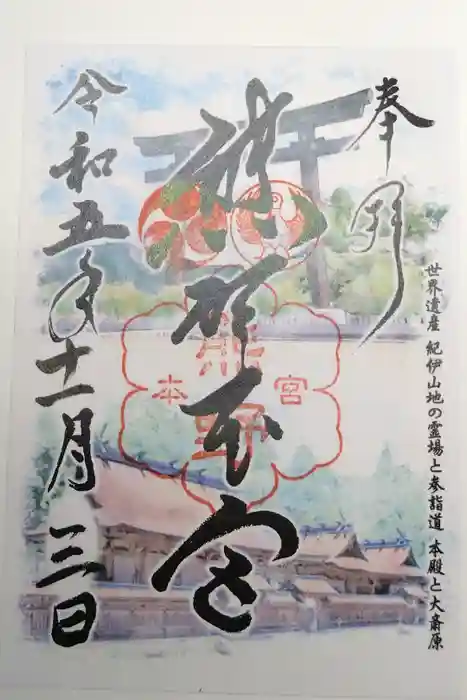 奉拝
世界遺産 紀伊山地の霊場と参詣道 本殿と大斎原
熊野本宮
熊野
本宮
令和五年十一月三日